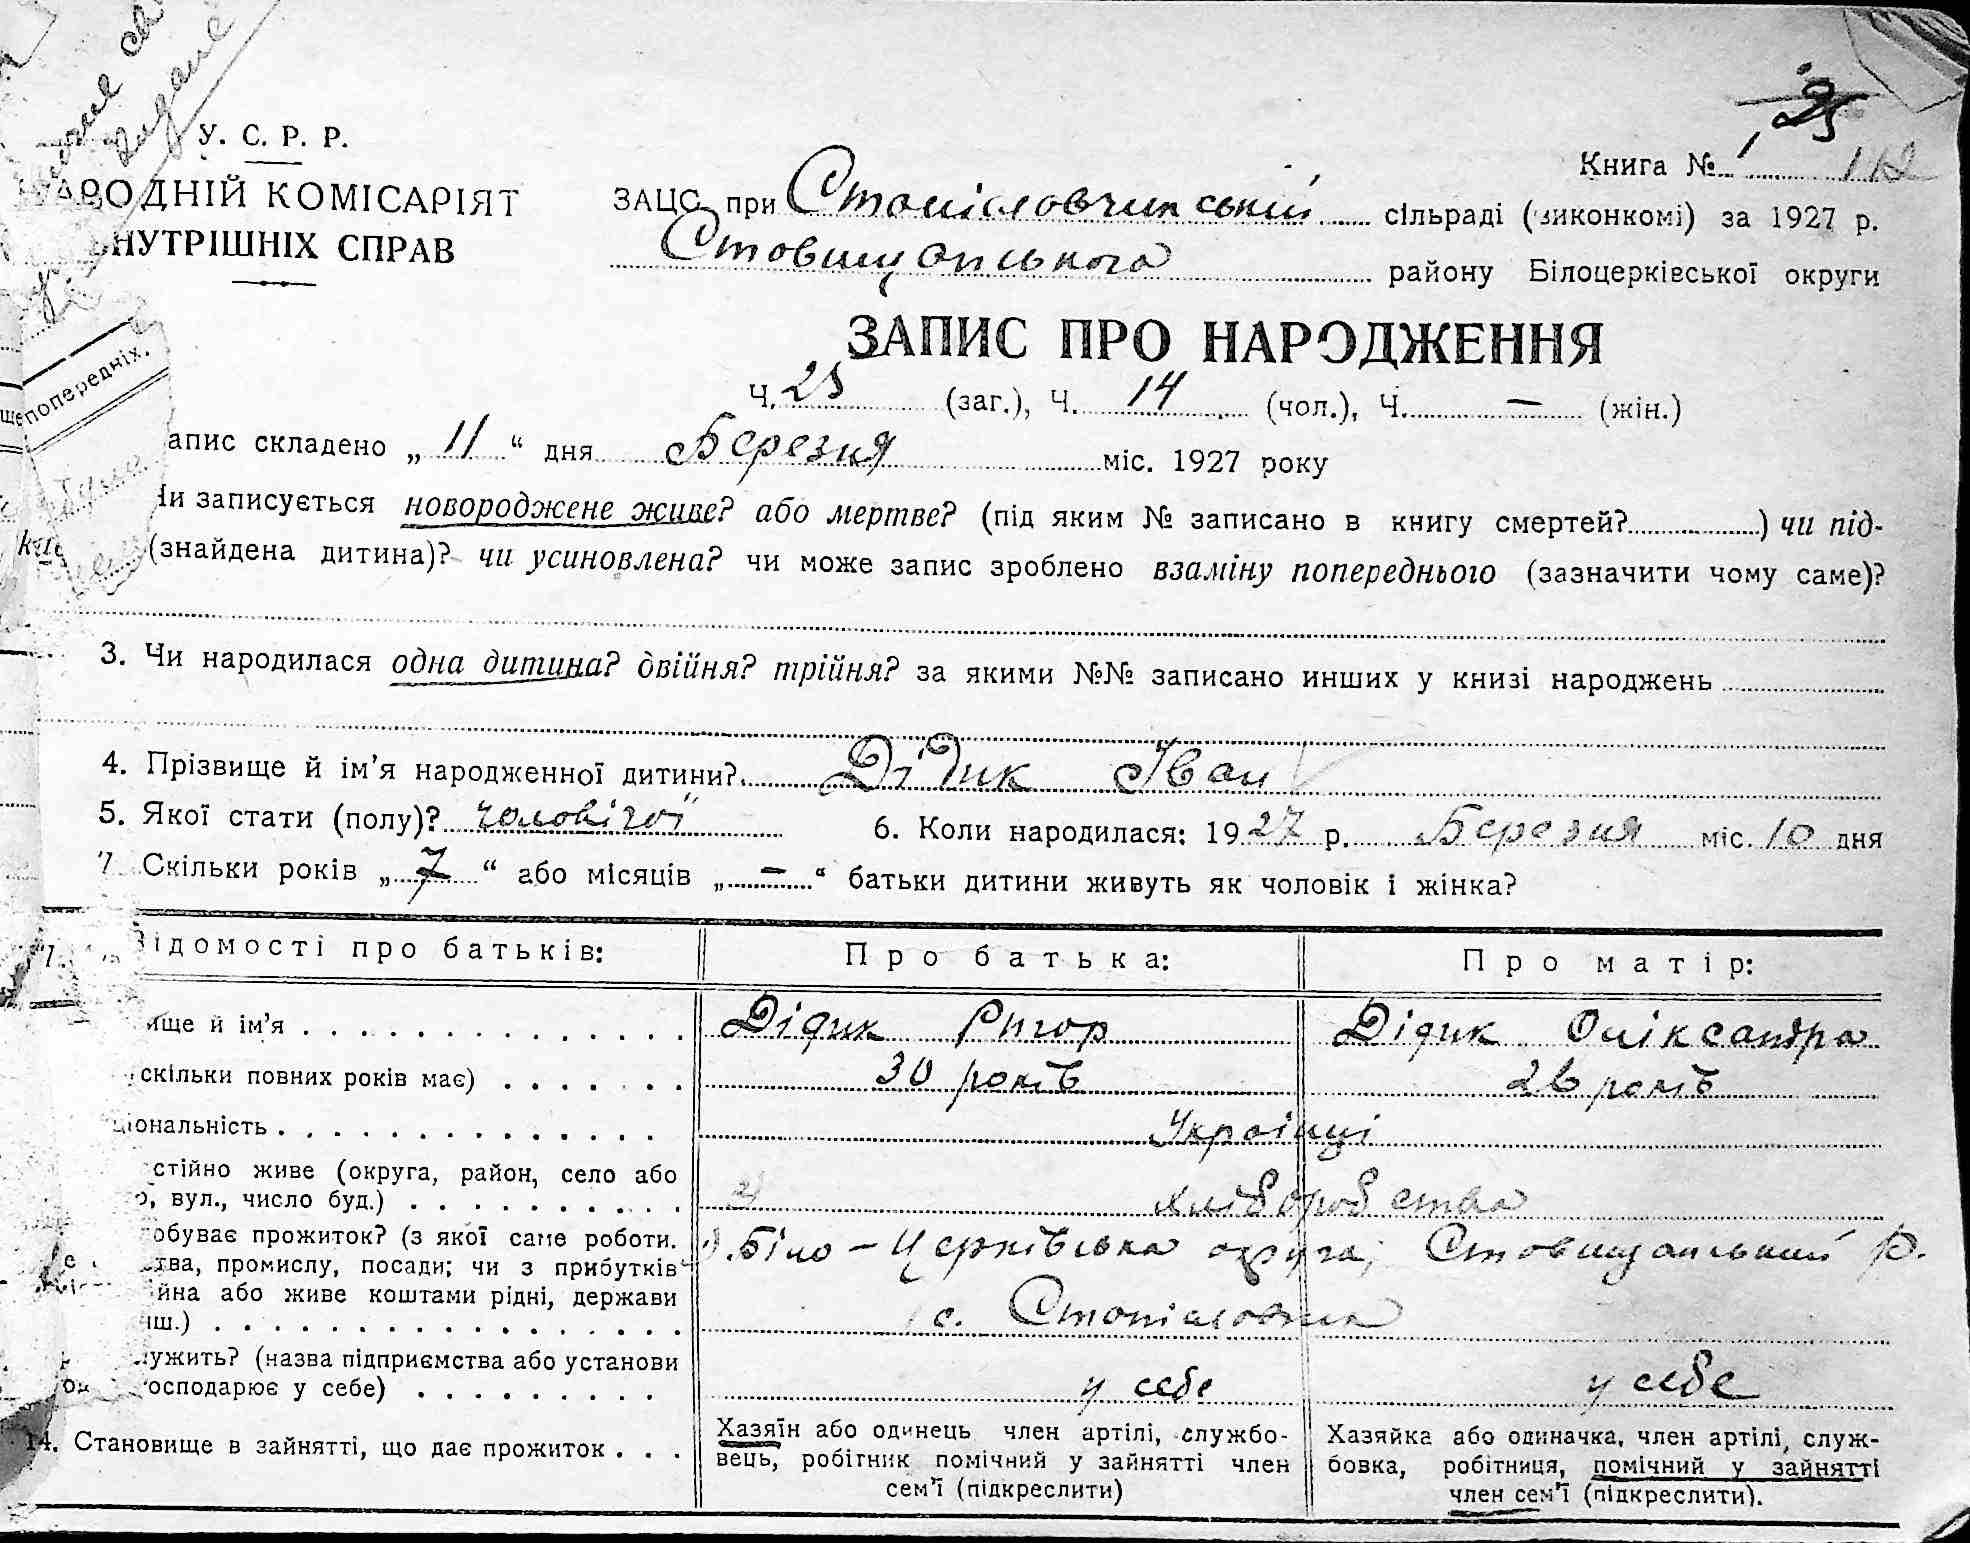 У. С. Р. Р.
АРОДНІЙ КОМІСАРІЯТ
НУТРІШНІХ СПРАВ
Книга №
ЗАЦС при Станіславчинській сільраді (виконкомі) за 1927 р.
Ставищанського району Білоцерківської округи
ЗАПИС ПРО НАРОДЖЕННЯ
Ч. 25 (заг.), Ч. 14 (чол.), Ч. — (жін.)
попередніх.
апис складено „ 11 “ дня Березня міс. 1927 року
и записується новороджене живе? або мертве? (під яким № записано в книгу смертей?) чи під-
(знайдена дитина)? чи усиновлена? чи може запис зроблено взаміну попереднього (зазначити чому саме)?
3. Чи народилася одна дитина? двійня? трійня? за якими №№ записано инших у книзі народжень
4. Прізвище й ім’я народженної дитини? Дідик Іван
5. Якої стати (полу)? чоловічої 6. Коли народилася: 1927 р. Березня міс. 10 дня
7 Скільки років „ 7 “ або місяців „ — “ батьки дитини живуть як чоловік і жінка?
ідомості про батьків: Про батька: Про матір:
ище й ім’я Дідик Ригор Дідик Оліксандра
скільки повних років має) 30 років 26 років
іональність Українці
стійно живе (округа, район, село або
о, вул., число буд.) хліборобства
обуває прожиток? (з якої саме роботи. Біло-Церківська округа, Ставищанський р.
тва, промислу, посади; чи з прибутків
йна або живе коштами рідні, держави с. Станіславка
иш.)
ужить? (назва підприємства або установи
осподарює у себе) у себе у себе
14. Становище в зайнятті, що дає прожиток
Хазяїн або одинець член артілі, службо-
вець, робітник помічний у зайнятті член
сем’ї (підкреслити)
Хазяйка або одиначка, член артілі, служ-
бовка, робітниця, помічний у зайнятті
член сем’ї (підкреслити).